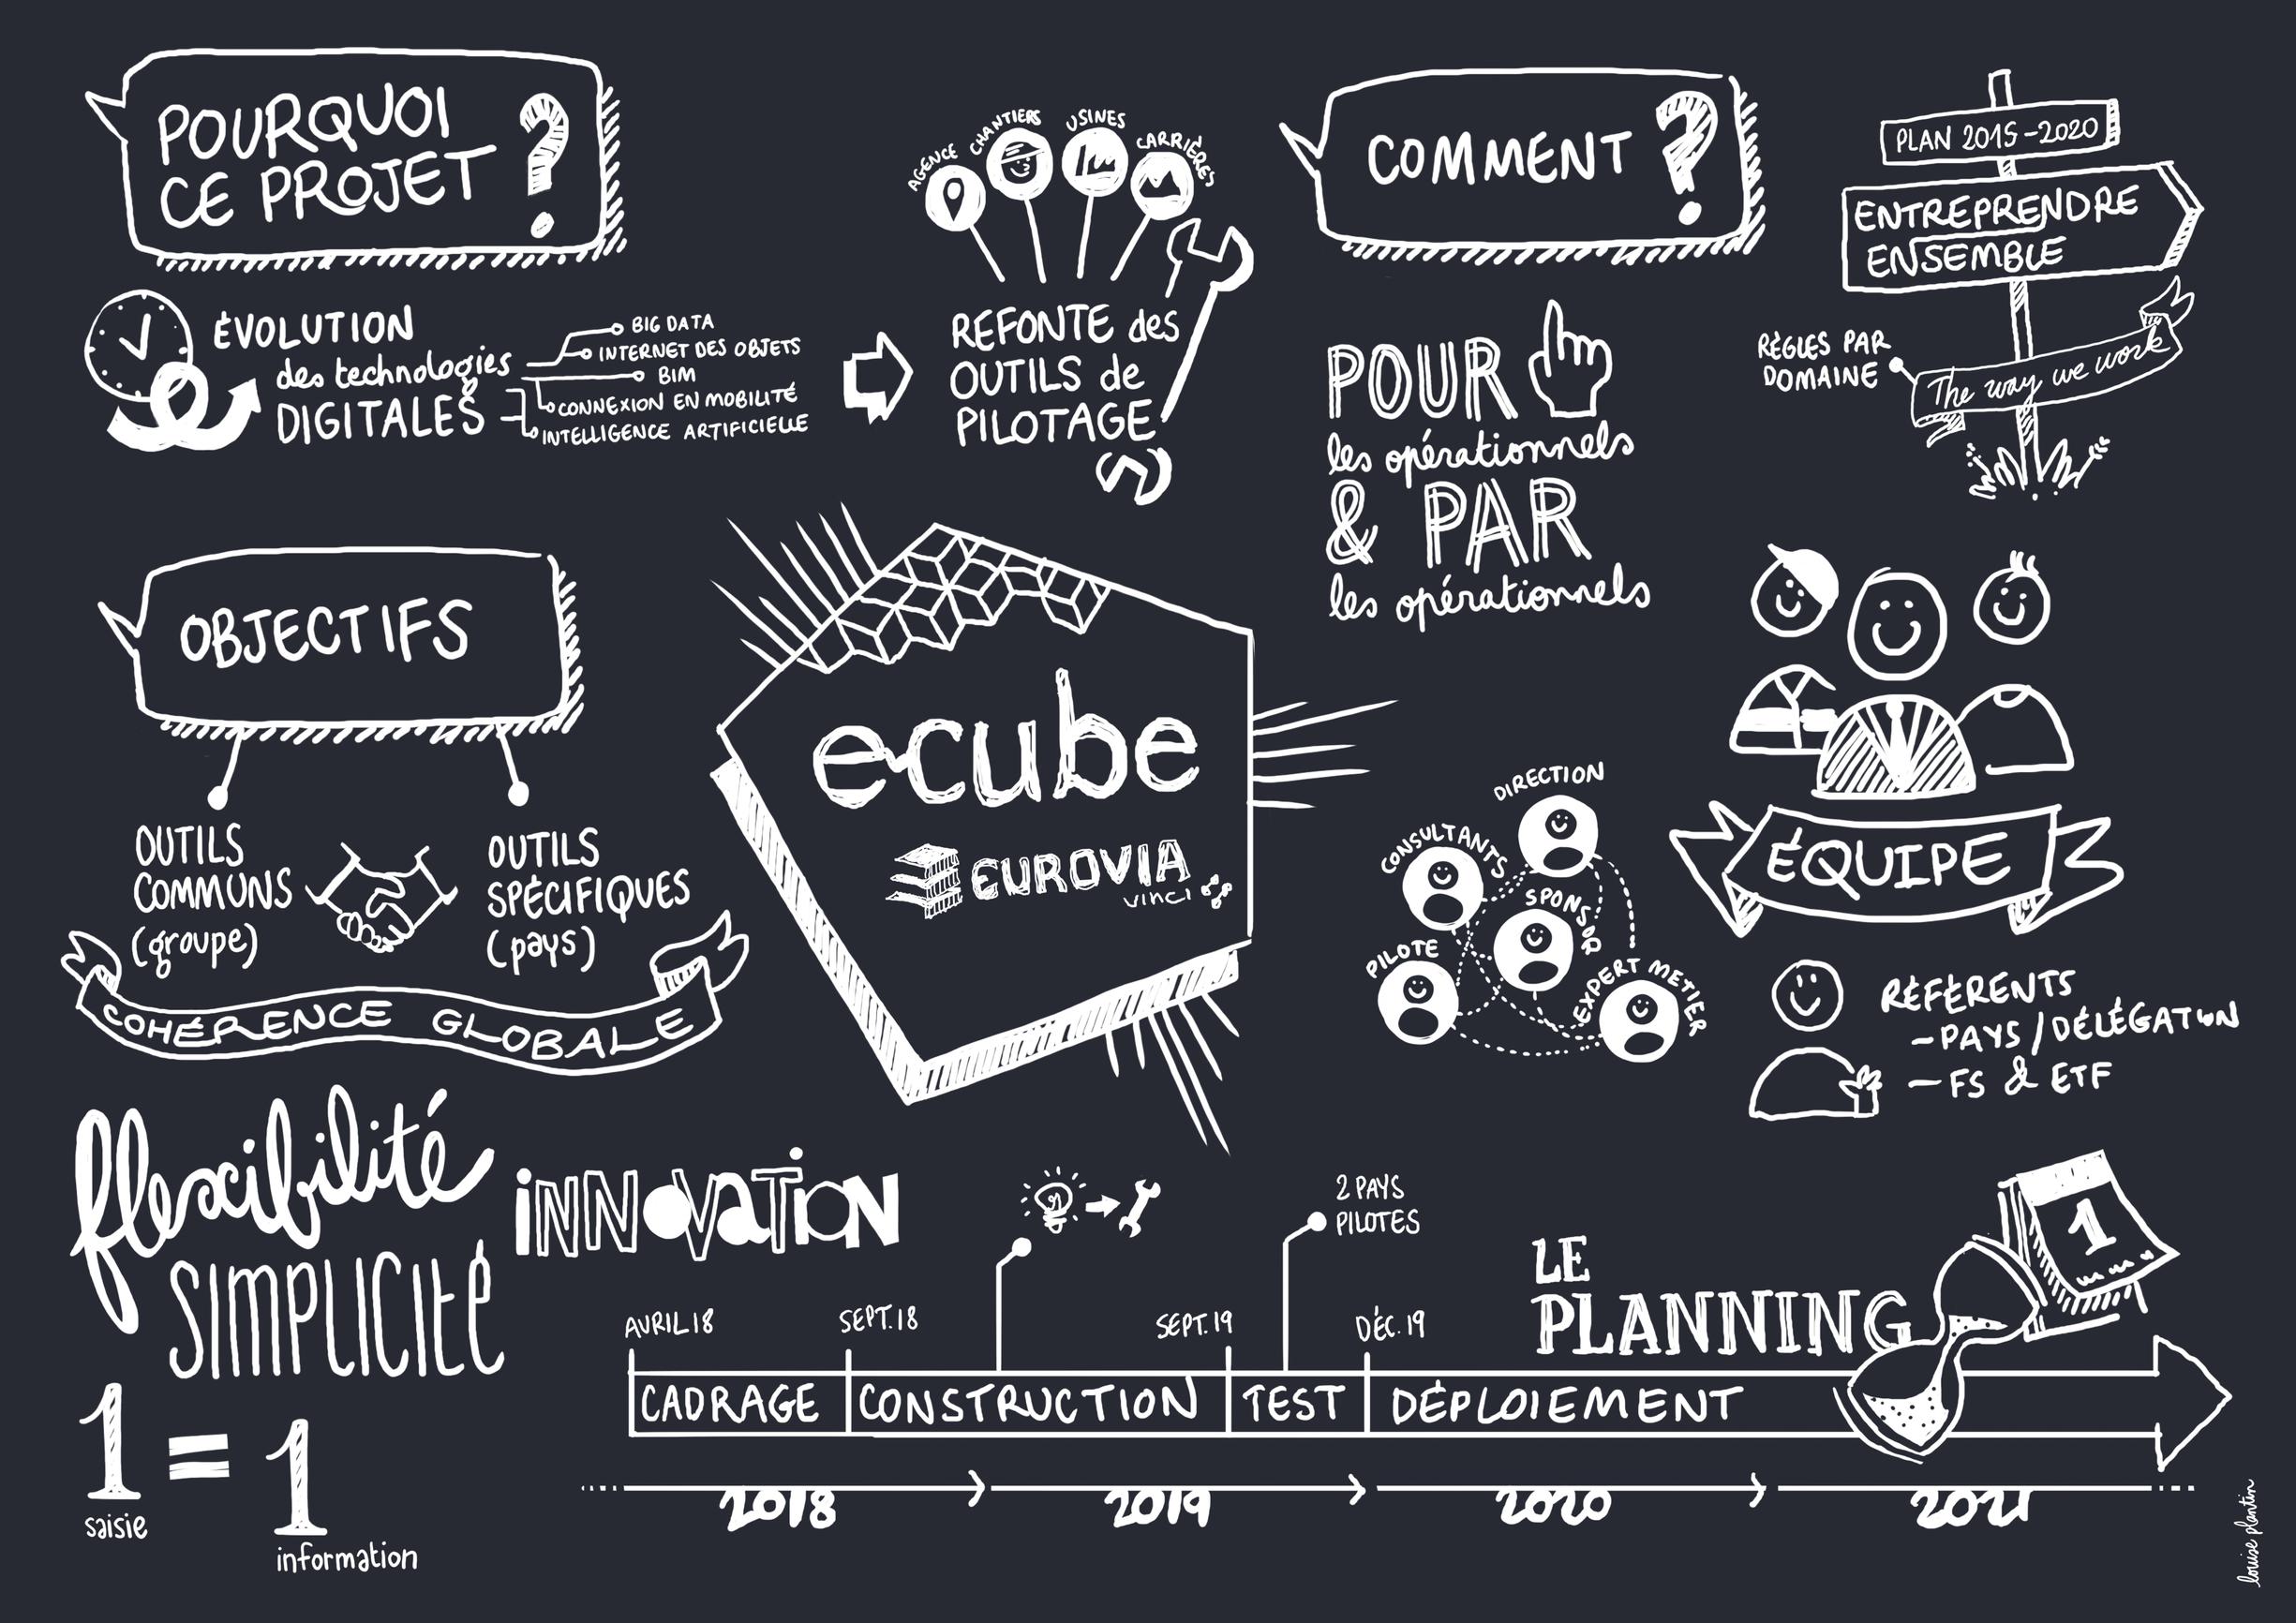 POURQUOI
CE PROJET ?
ÉVOLUTION
des technologies
DIGITALES
BIG DATA
INTERNET DES OBJETS
BIM
CONNEXION EN MOBILITÉ
INTELLIGENCE ARTIFICIELLE
AGENCE
CHANTIERS
USINES
CARRIÈRES
REFONTE des
OUTILS de
PILOTAGE
COMMENT ?
PLAN 2015-2020
ENTREPRENDRE
ENSEMBLE
RÈGLES PAR
DOMAINE
The way we work
POUR
les opérationnels
& PAR
les opérationnels
OBJECTIFS
OUTILS
COMMUNS
(groupe)
OUTILS
SPÉCIFIQUES
(pays)
COHÉRENCE GLOBALE
e-cube
EUROVIA
VINCI
DIRECTION
CONSULTANTS
SPONSOR
PILOTE
EXPERT METIER
ÉQUIPE
RÉFÉRENTS
- PAYS / DÉLÉGATION
- FS & ETF
flexibilité
SIMPLICITÉ
INNOVATION
1 = 1
saisie
information
2 PAYS
PILOTES
LE
PLANNING
1
AVRIL 18
SEPT. 18
SEPT. 19
DÉC. 19
CADRAGE
CONSTRUCTION
TEST
DÉPLOIEMENT
2018
2019
2020
2021
louise plantin